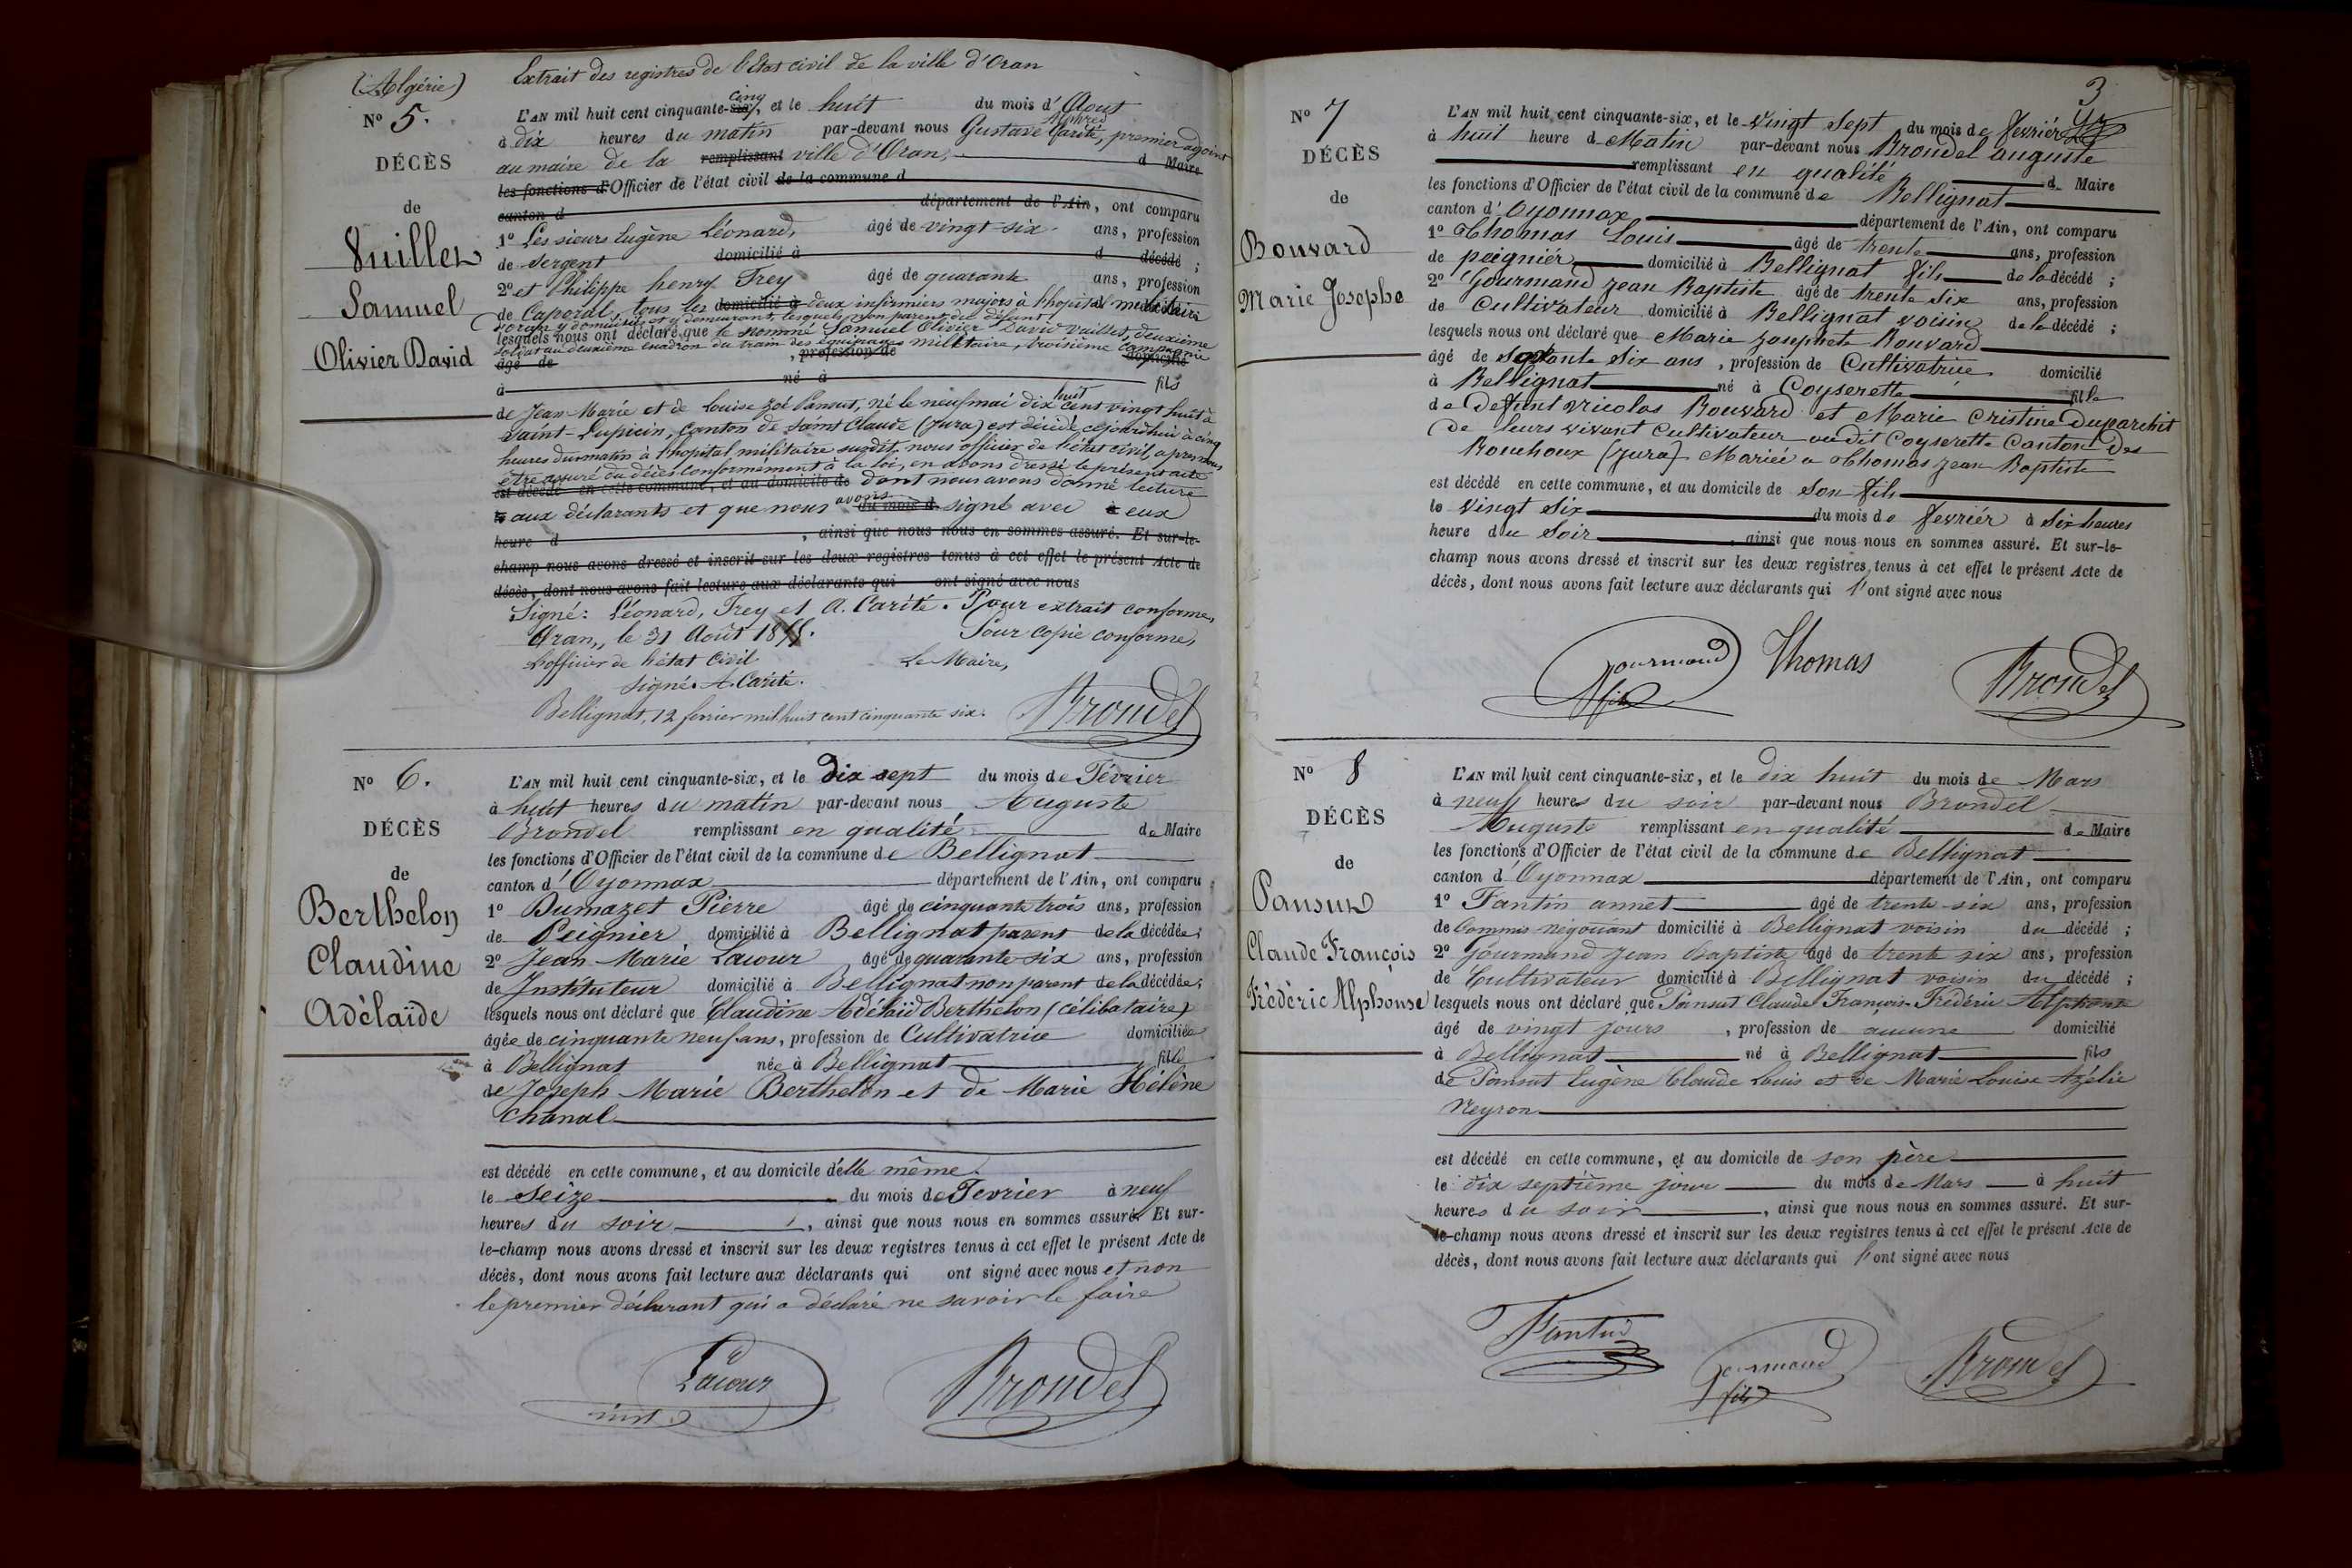 (Algérie)
Extrait des registres de l'Etat civil de la ville d'Oran
N° 5.
DÉCÈS
de
Vuillet
Samuel
Olivier David
L'AN mil huit cent cinquante-six, cinq et le huit du mois d'Aout
à dix heures du matin par-devant nous Gustave Alphred Carité, premier adjoint
au maire de la remplissant ville d'Oran, d Maire
les fonctions d'Officier de l'état civil de la commune d
canton d département de l'Ain, ont comparu
1° Les sieurs Eugène Léonard, âgé de vingt-six ans, profession
de Sergent domicilié à d décédé ;
2° et Philippe henry Frey âgé de quarante ans, profession
de Caporal, tous les domicilié à deux infirmiers majors à l'hopital militaire
d'oran y domiciliés et y demeurant, lesquels non parent du défunt
lesquels nous ont déclaré que le nommé Samuel Olivier David Vuillet, deuxième
soldat au deuxième escadron du train des équipages militaire, troisième compagnie
âgé de , profession de domicilié
à né à fils
de Jean-Marie et de Louise Zoé Pansut, né le neuf mai dix huit cent vingt huit à
Saint-Lupicin, Canton de Saint Claude (Jura) est décédé cejourd'hui à cinq
heures du matin à l'hopital militaire susdit, nous officier de l'état civil, après nous
être assuré du décès conformément à la loi, en avons dressé le présent acte
est décédé en cette commune, et au domicile de dont nous avons donné lecture
le aux déclarants et que nous avons du mois d signé avec à eux
heure d , ainsi que nous nous en sommes assuré. Et sur-le-
champ nous avons dressé et inscrit sur les deux registres tenus à cet effet le présent Acte de
décès, dont nous avons fait lecture aux déclarants qui ont signé avec nous
Signé: Léonard, Frey et A. Carité. Pour extrait conforme,
Oran, le 31 Août 1855. Pour copie conforme,
L'officier de l'état Civil Le Maire,
signé A. Carité.
Bellignat, 12 fevrier mil huit cent cinquante six. Brondel
N° 6.
DÉCÈS
de
Berthelon
Claudine
Adélaïde
L'AN mil huit cent cinquante-six, et le Dix sept du mois de Février
à huit heures du matin par-devant nous Auguste
Brondel remplissant en qualité de Maire
les fonctions d'Officier de l'état civil de la commune de Bellignat
canton d'Oyonnax département de l'Ain, ont comparu
1° Dumazet Pierre âgé de cinquante trois ans, profession
de Peignier domicilié à Bellignat parent de la décédée ;
2° Jean-Marie Lacour âgé de quarante-six ans, profession
de Instituteur domicilié à Bellignat non parent de la décédée ;
lesquels nous ont déclaré que Claudine Adélaïd Berthelon (célibataire)
âgée de cinquante neuf ans, profession de Cultivatrice domiciliée
à Bellignat née à Bellignat fille
de Joseph Marie Berthelon et de Marie Hélène
Chanal
est décédé en cette commune, et au domicile d'elle même.
le Seize du mois de Fevrier à neuf
heures du soir , ainsi que nous nous en sommes assuré. Et sur-
le-champ nous avons dressé et inscrit sur les deux registres tenus à cet effet le présent Acte de
décès, dont nous avons fait lecture aux déclarants qui ont signé avec nous et non
le premier déclarant qui a déclaré ne savoir le faire
Lacour
inst.
Brondel
3
N° 7
DÉCÈS
de
Bouvard
Marie Josephe
L'AN mil huit cent cinquante-six, et le vingt sept du mois de fevriér
à huit heure d Matin par-devant nous Brondel auguste
remplissant en qualité d Maire
les fonctions d'Officier de l'état civil de la commune de Bellignat
canton d'Oyonnax département de l'Ain, ont comparu
1° Thomas Louis âgé de trente ans, profession
de peignier domicilié à Bellignat fils de la décédé ;
2° Gourmand jean Baptiste âgé de trente six ans, profession
de Cultivateur domicilié à Bellignat voisin de la décédé ;
lesquels nous ont déclaré que Marie josephete Bouvard
âgé de septante six ans , profession de Cultivatrice domicilié
à Bellignat né à Coyserette fille
de defunt nicolas Bouvard et Marie Cristine Duparchit
De leurs vivant Cultivateur au dit Coyserette Canton Des
Bouchoux (jura) Mariée a Thomas jean Baptiste
est décédé en cette commune, et au domicile de son fils
le vingt six du mois de fevriér à six heures
heure du soir , ainsi que nous nous en sommes assuré. Et sur-le-
champ nous avons dressé et inscrit sur les deux registres tenus à cet effet le présent Acte de
décès, dont nous avons fait lecture aux déclarants qui l'ont signé avec nous
Gourmand fils Thomas Brondel
N° 8
DÉCÈS
de
Pansut
Claude François
Frédéric Alphonse
L'AN mil huit cent cinquante-six, et le dix huit du mois de Mars
à neuf heures du soir par-devant nous Brondel
Auguste remplissant en qualité de Maire
les fonctions d'Officier de l'état civil de la commune de Bellignat
canton d'Oyonnax département de l'Ain, ont comparu
1° Fantin annet âgé de trente-six ans, profession
de Commis négociant domicilié à Bellignat voisin du décédé ;
2° Gourmand jean Baptiste âgé de trente six ans, profession
de Cultivateur domicilié à Bellignat voisin du décédé ;
lesquels nous ont déclaré que Pansut Claude François Frédéric Alphonse
âgé de vingt jours , profession de aucune domicilié
à Bellignat né à Bellignat fils
de Pansut Eugène Claude Louis et de Marie Louise Azélie
Neyron
est décédé en cette commune, et au domicile de son père
le dix septième jour du mois de Mars à huit
heures du soir , ainsi que nous nous en sommes assuré. Et sur-
le-champ nous avons dressé et inscrit sur les deux registres tenus à cet effet le présent Acte de
décès, dont nous avons fait lecture aux déclarants qui l'ont signé avec nous
Fantin
Gourmand fils
Brondel